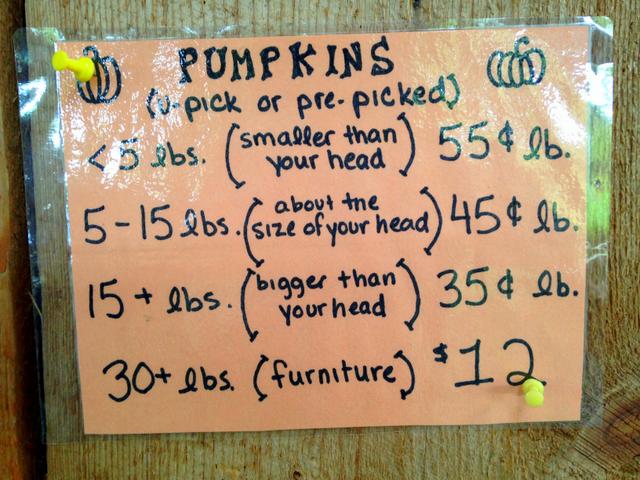 PUMPKINS
(u-pick or pre-picked)
<5 lbs. (smaller than your head) 55¢ lb.
5-15 lbs. (about the size of your head) 45¢ lb.
15+ lbs. (bigger than your head) 35¢ lb.
30+ lbs. (furniture) $12